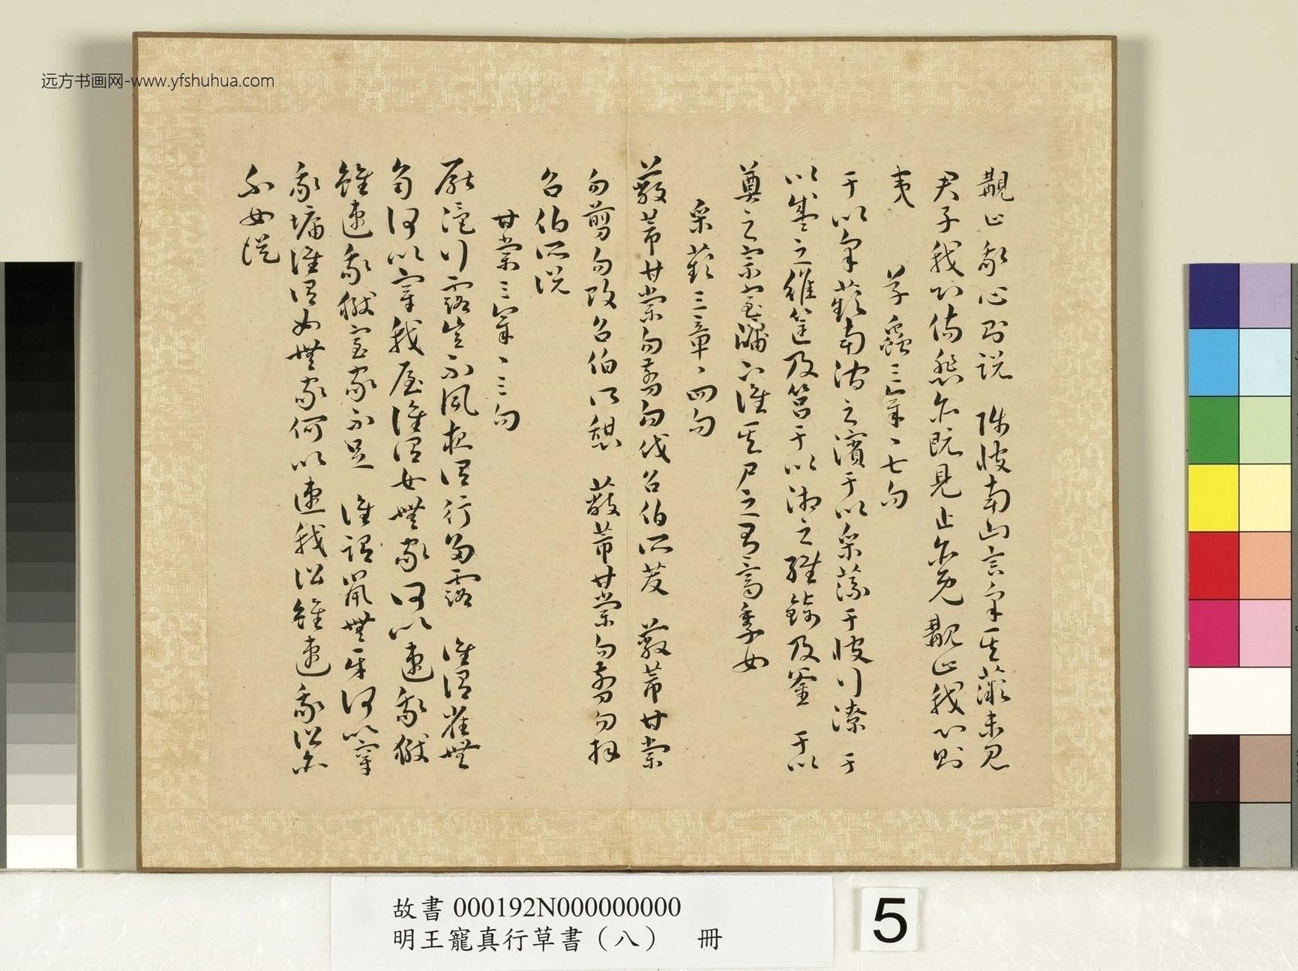 远方书画网-www.yfshuhua.com
覯止我心則説 陟彼南山言采其薇未見
君子我心傷悲亦既見止亦覯止我心則
夷
草蟲三章章七句
于以采蘋南澗之濱于以采藻于彼行潦于
以盛之維筐及筥于以湘之維錡及釜 于以
奠之宗室牖下誰其尸之有齊季女
采蘋三章章四句
蔽芾甘棠勿翦勿伐召伯所茇 蔽芾甘棠
勿翦勿敗召伯所憩 蔽芾甘棠勿翦勿拜
召伯所説
甘棠三章章三句
厭浥行露豈不夙夜謂行多露 誰謂雀無
角何以穿我屋誰謂女無家何以速我獄
雖速我獄室家不足 誰謂鼠無牙何以穿
我墉誰謂女無家何以速我訟雖速我訟亦
不女從
故書 000192N000000000
明王寵真行草書（八） 冊
5